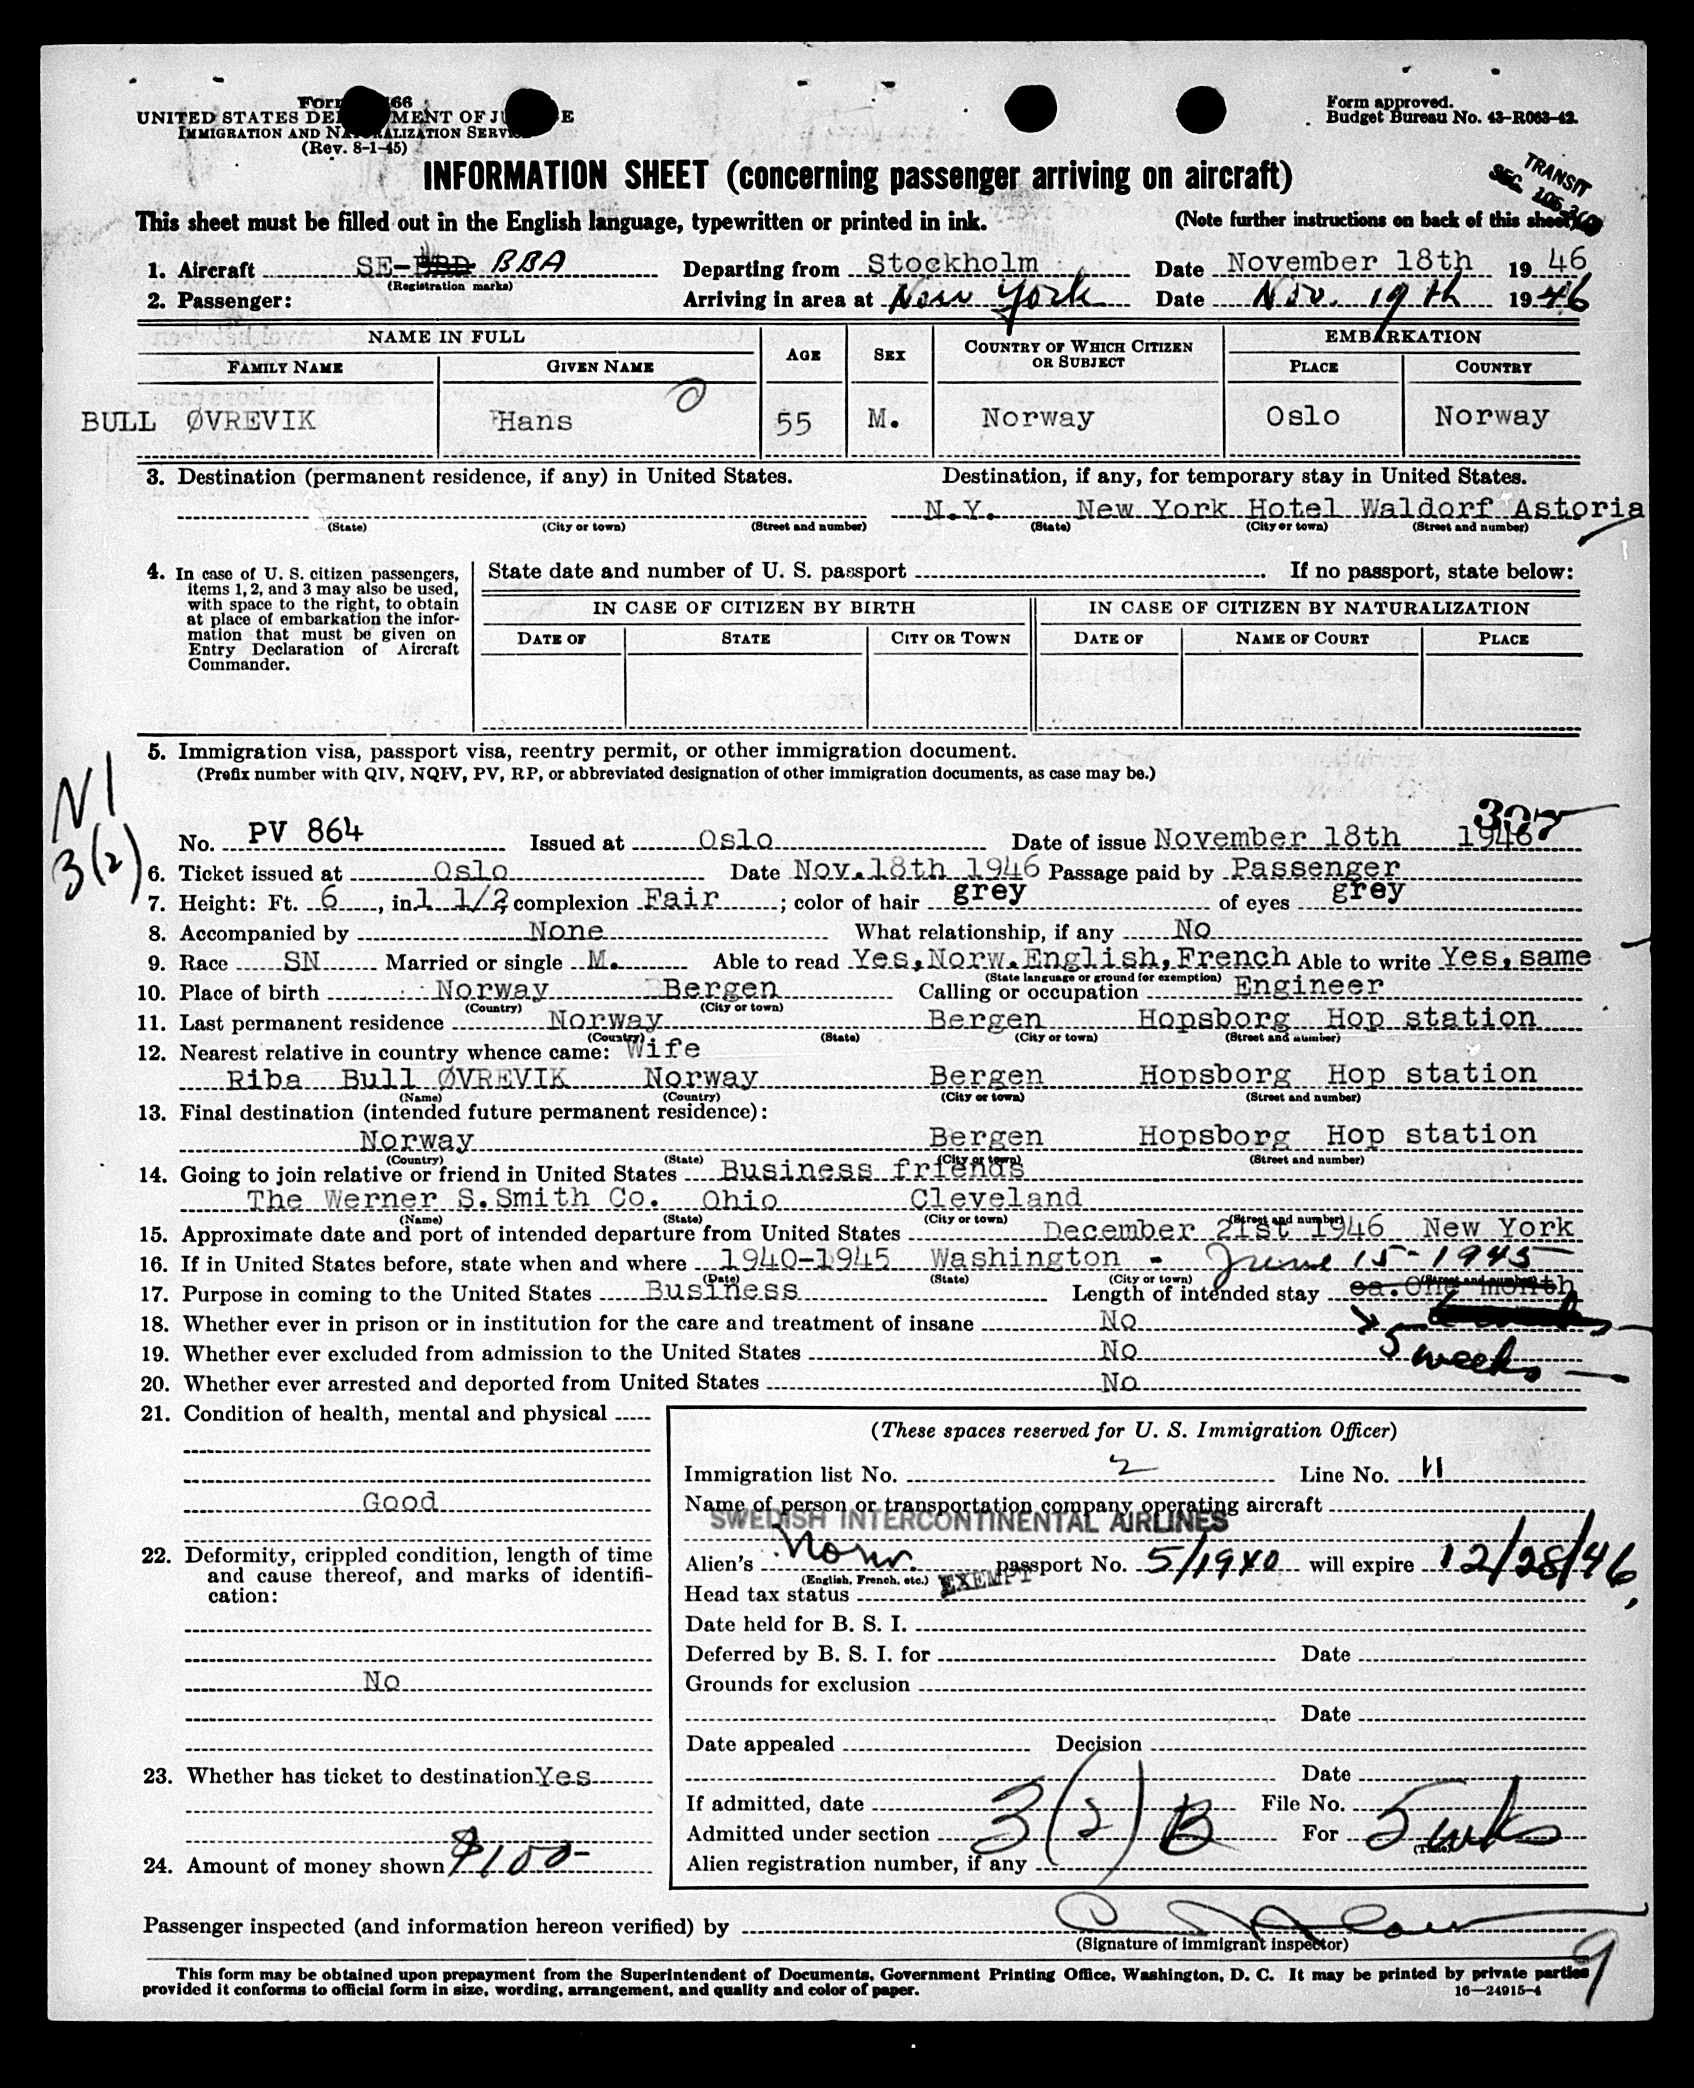 Form 66
UNITED STATES DE MENT OF J E
IMMIGRATION AND NATURALIZATION SERVICE
(Rev. 8-1-45)
Form approved.
Budget Bureau No. 43-R063-42.
INFORMATION SHEET (concerning passenger arriving on aircraft)
TRANSIT
SEC.
This sheet must be filled out in the English language, typewritten or printed in ink. (Note further instructions on back of this sheet)
1. Aircraft SE- BBA Departing from Stockholm Date November 18th 19 46
(Registration marks)
2. Passenger: Arriving in area at New York Date Nov. 19th 19 46
NAME IN FULL AGE SEX COUNTRY OF WHICH CITIZEN OR SUBJECT EMBARKATION
FAMILY NAME GIVEN NAME PLACE COUNTRY
BULL ØVREVIK Hans 55 M. Norway Oslo Norway
3. Destination (permanent residence, if any) in United States. Destination, if any, for temporary stay in United States.
N.Y. New York Hotel Waldorf Astoria
(State) (City or town) (Street and number) (State) (City or town) (Street and number)
4. In case of U. S. citizen passengers, items 1, 2, and 3 may also be used, with space to the right, to obtain at place of embarkation the information that must be given on Entry Declaration of Aircraft Commander.
State date and number of U. S. passport If no passport, state below:
IN CASE OF CITIZEN BY BIRTH IN CASE OF CITIZEN BY NATURALIZATION
DATE OF STATE CITY OR TOWN DATE OF NAME OF COURT PLACE
5. Immigration visa, passport visa, reentry permit, or other immigration document.
(Prefix number with QIV, NQIV, PV, RP, or abbreviated designation of other immigration documents, as case may be.)
N1
3(2)
307
No. PV 864 Issued at Oslo Date of issue November 18th 1946
6. Ticket issued at Oslo Date Nov.18th 1946 Passage paid by Passenger
7. Height: Ft. 6, in. 1 1/2, complexion Fair; color of hair grey of eyes grey
8. Accompanied by None What relationship, if any No
9. Race SN Married or single M. Able to read Yes,Norw.English,French Able to write Yes,same
(State language or ground for exemption)
10. Place of birth Norway Bergen Calling or occupation Engineer
(Country) (City or town)
11. Last permanent residence Norway Bergen Hopsborg Hop station
(Country) (State) (City or town) (Street and number)
12. Nearest relative in country whence came: Wife
Riba Bull ØVREVIK Norway Bergen Hopsborg Hop station
(Name) (Country) (City or town) (Street and number)
13. Final destination (intended future permanent residence):
Norway Bergen Hopsborg Hop station
(Country) (State) (City or town) (Street and number)
14. Going to join relative or friend in United States Business friends
The Werner S.Smith Co. Ohio Cleveland
(Name) (State) (City or town) (Street and number)
15. Approximate date and port of intended departure from United States December 21st 1946 New York
16. If in United States before, state when and where 1940-1945 Washington - June 15-1945
(Date) (State) (City or town) (Street and number)
17. Purpose in coming to the United States Business Length of intended stay ca. One month
18. Whether ever in prison or in institution for the care and treatment of insane No
5 weeks
19. Whether ever excluded from admission to the United States No
20. Whether ever arrested and deported from United States No
21. Condition of health, mental and physical
Good
22. Deformity, crippled condition, length of time and cause thereof, and marks of identification:
No
23. Whether has ticket to destination Yes
24. Amount of money shown $100-
(These spaces reserved for U. S. Immigration Officer)
Immigration list No. 2 Line No. 11
Name of person or transportation company operating aircraft
SWEDISH INTERCONTINENTAL AIRLINES
Alien's Norw. passport No. 5/1940 will expire 12/28/46
(English, French, etc.)
Head tax status EXEMPT
Date held for B. S. I.
Deferred by B. S. I. for Date
Grounds for exclusion
Date
Date appealed Decision
Date
If admitted, date File No.
Admitted under section 3(2) B For 5 wks
(Time)
Alien registration number, if any
Passenger inspected (and information hereon verified) by
(Signature of immigrant inspector)
9
This form may be obtained upon prepayment from the Superintendent of Documents, Government Printing Office, Washington, D. C. It may be printed by private parties
provided it conforms to official form in size, wording, arrangement, and quality and color of paper.
16—24915-4